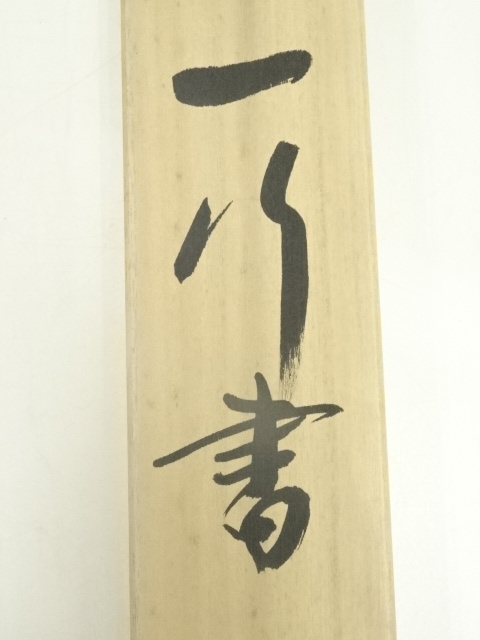 一行書